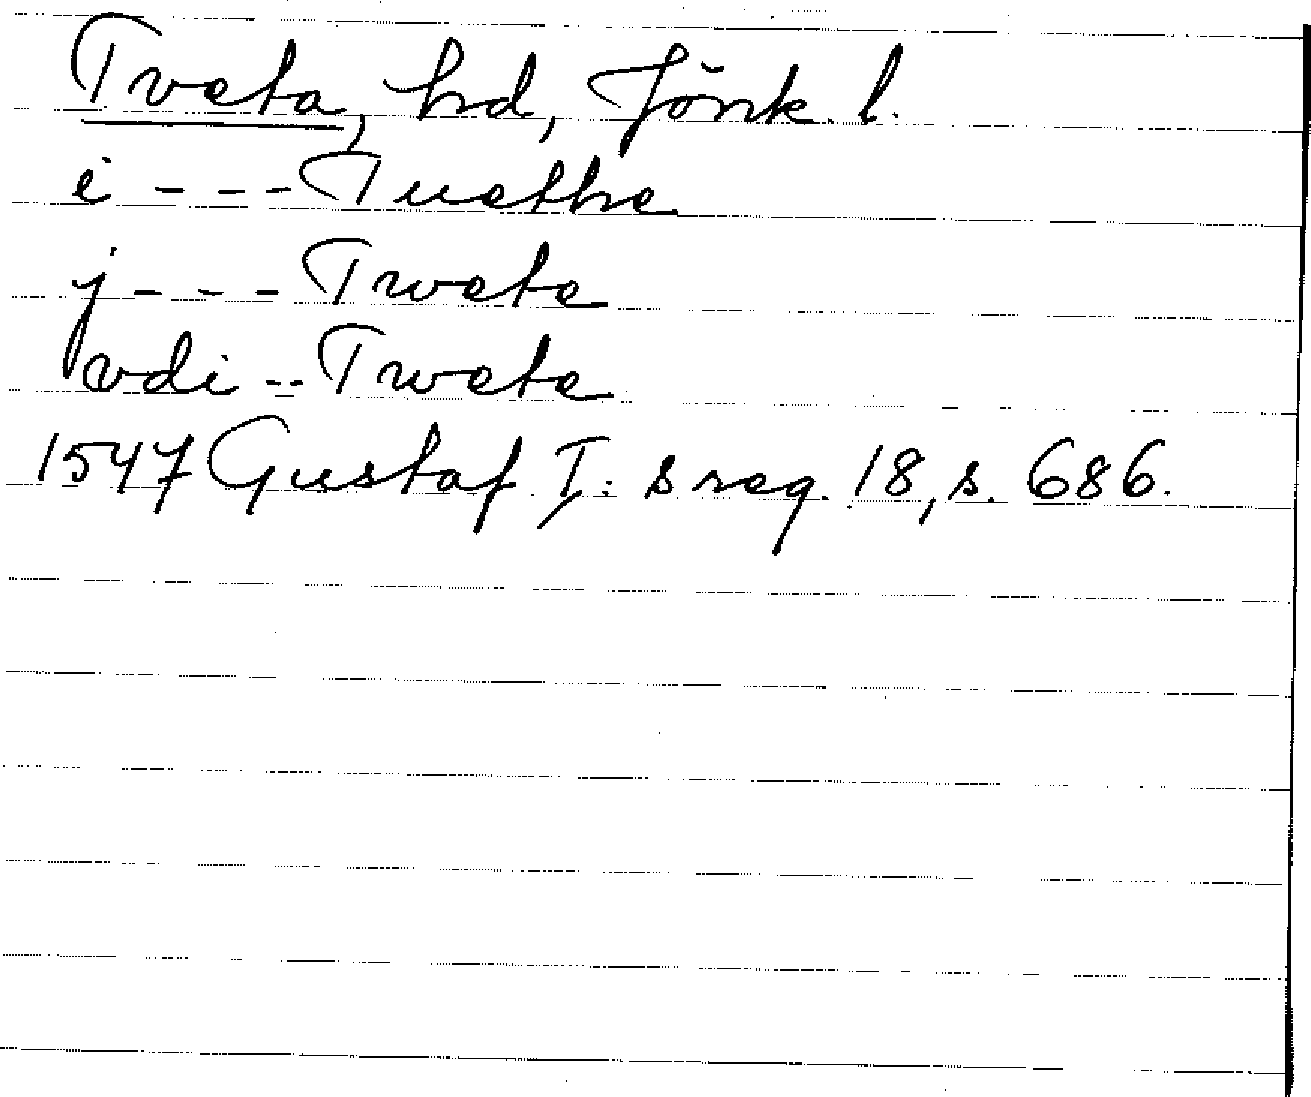 Tveta, hd, Jönk. l.
i - - - Tuethe
j - - - Twete
vdi -- Twete
1547 Gustaf I:s reg. 18, s. 686.